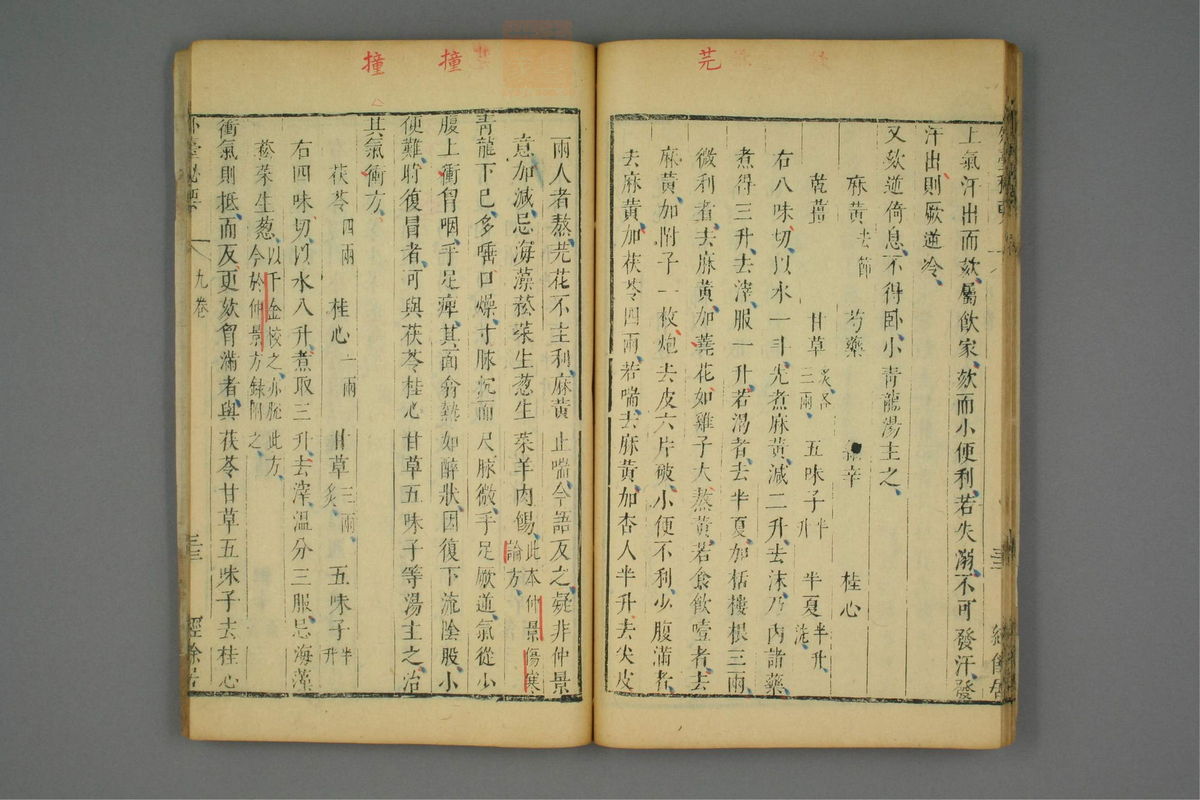 芫
上氣汗出而欬屬飲家欬而小便利若失溺不可發汗發
汗出則厥逆冷
又欬逆倚息不得卧小青龍湯主之
麻黃去節 芍藥 辛 桂心
乾薑 甘草炙各三兩 五味子半升 半夏半升洗
右八味切以水一斗先煮麻黃減二升去沫乃內諸藥
煮得三升去滓服一升若渴者去半夏加栝樓根三兩
微利者去麻黃加蕘花如雞子大熬黃若食飲噎者去
麻黃加附子一枚炮去皮六片破小便不利少腹滿者
去麻黃加茯苓四兩若喘去麻黃加杏人半升去尖皮
撞
撞
兩人者熬芫花不主利麻黃止喘今語反之疑非仲景
意加減忌海藻菘菜生葱生菜羊肉餳此本仲景傷寒論方
青龍下已多唾口燥寸脉沉而尺脉微手足厥逆氣從小
腹上衝胷咽手足痺其面翕熱如醉狀因復下流陰股小
便難時復冒者可與茯苓桂心甘草五味子等湯主之治
其氣衝方
茯苓四兩 桂心一兩 甘草三兩炙 五味子半升
右四味切以水八升煮取三升去滓溫分三服忌海藻
菘菜生葱以千金校之亦脫此方今於仲景方錄附之
衝氣則抵而反更欬胷滿者與茯苓甘草五味子去桂心
九卷